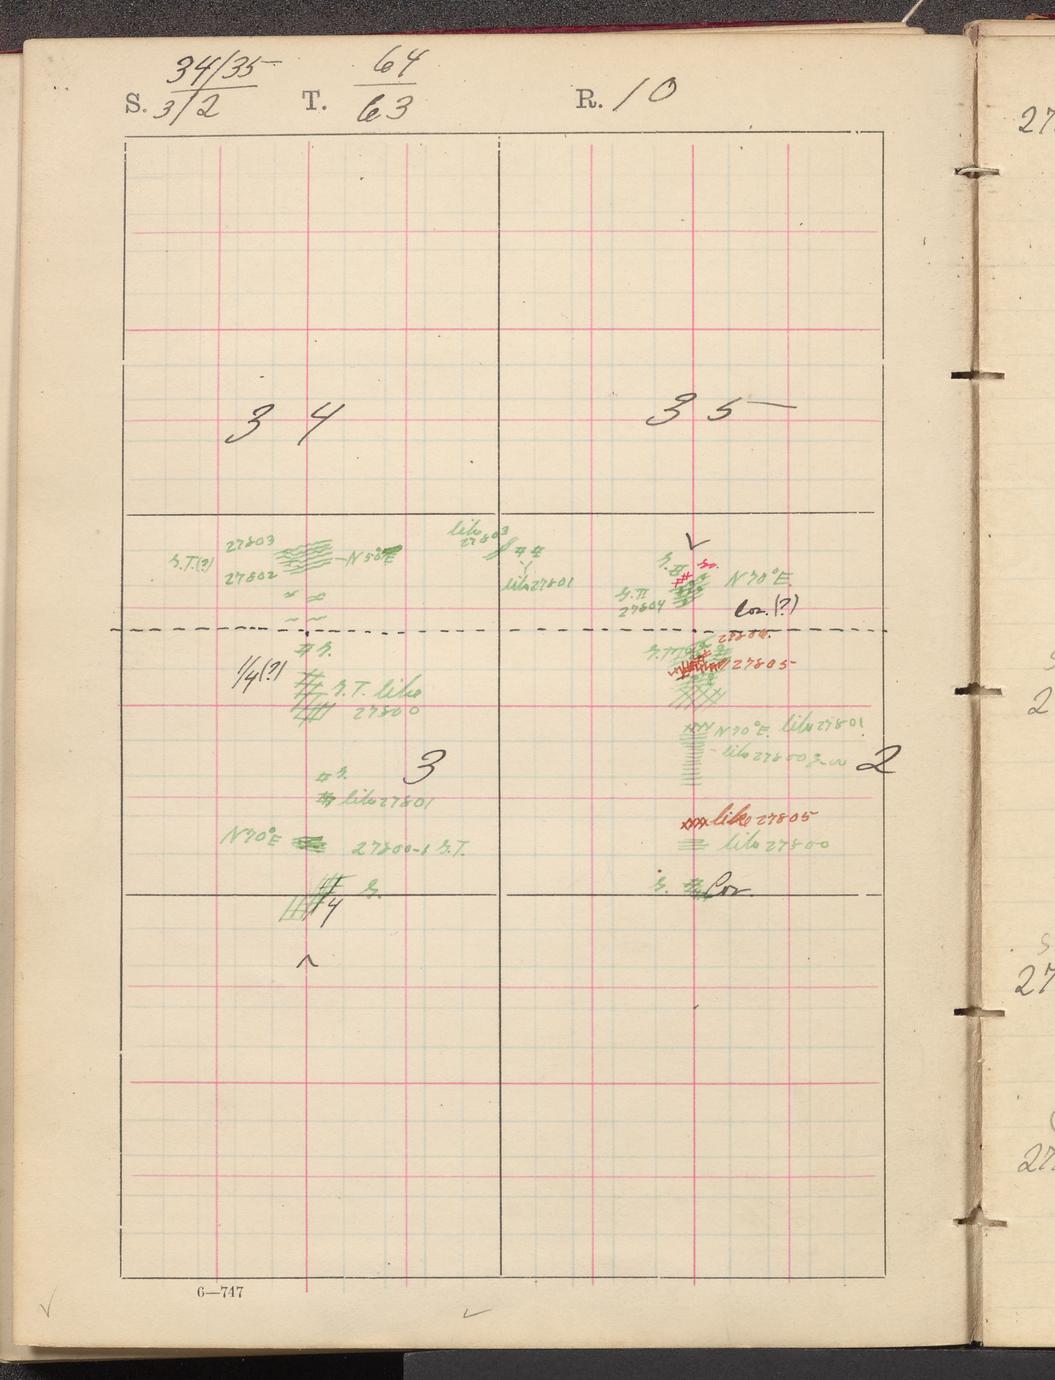 34/35 64
S. 3/2 T. 63 R. 10
34 35
like
27803
27803
S.T.(?) N50°E
27802
like 27801
N70°E
27804
Cor. (?)
S.
1/4(?)
27805
S.T. like
27800
N70°E. like 27801
like 27800
3 2
S.
like 27801
like 27805
N70°E 27800-1 S.T.
like 27800
S. S. Cor.
1/4
6—747
27
2
27
27